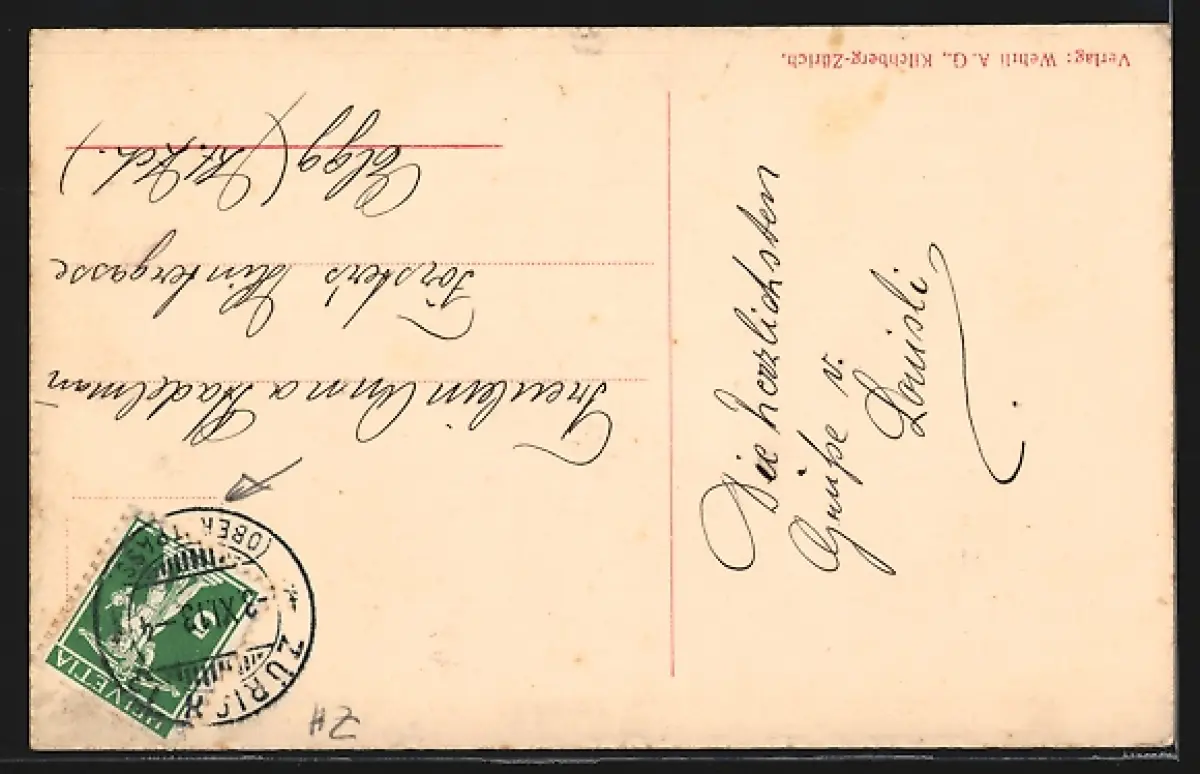 Verlag: Wehrli A. G., Kilchberg-Zürich.
Die herzlichsten
Grüße v.
Louisli.
Fräulein Anna Stadelman
Försters Hintergasse
Elgg (Kt. Zch.)
ZÜRICH
(OBERSTRASS)
-3.XI.13-4
HELVETIA
5
ZH